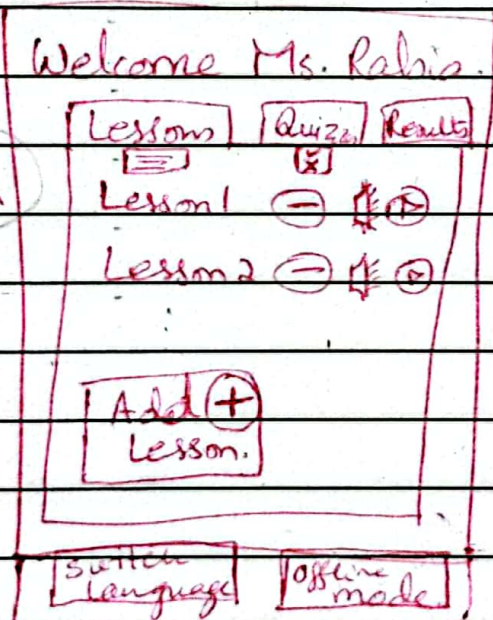 Welcome Ms. Rabia.
Lessons Quizz Results
Lesson 1
Lesson 2
Add +
Lesson.
Switch
Language
Offline
mode